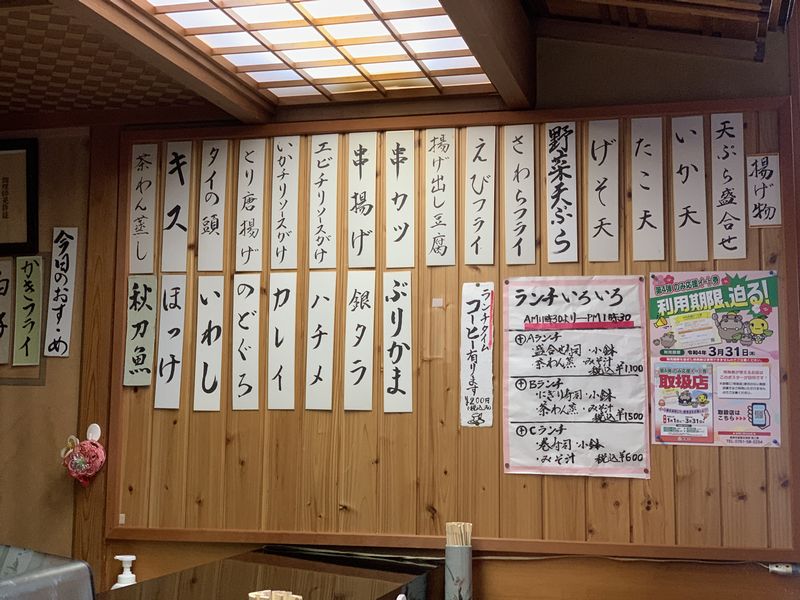 揚げ物
天ぷら盛合せ
いか天
たこ天
げそ天
野菜天ぷら
さわらフライ
えびフライ
揚げ出し豆腐
串カツ
串揚げ
エビチリソースがけ
いかチリソースがけ
とり唐揚げ
タイの頭
キス
茶わん蒸し
ぶりかま
銀タラ
ハチメ
カレイ
のどぐろ
いわし
ほっけ
秋刀魚
今日のおすゝめ
かきフライ
白子
ランチタイム
コーヒー有ります
¥200円(税込)
ランチいろいろ
AM11時30より―PM1時30
Aランチ
・盛合せ寿司・小鉢
・茶わん蒸・みそ汁
税込¥1,100
Bランチ
・にぎり寿司・小鉢
・茶わん蒸・みそ汁
税込¥1500
Cランチ
・巻寿司・小鉢
・みそ汁 税込¥600
利用期限、迫る!
令和4年3月31日(木)
取扱店
取扱店は
こちら>>>